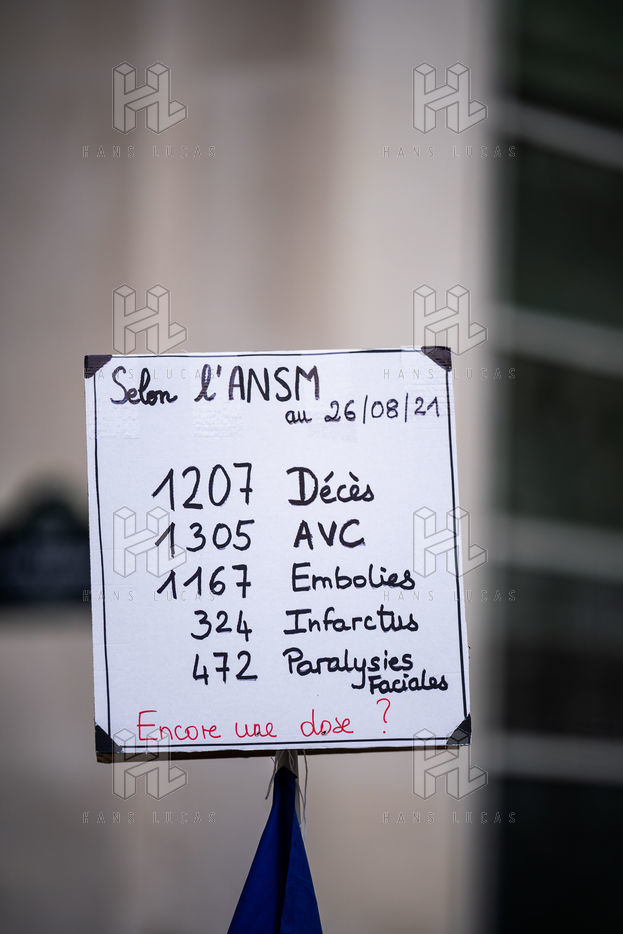 HANS LUCAS HANS LUCAS
HANS LUCAS HANS LUCAS
Selon l'ANSM
au 26/08/21
1207 Décès
1305 AVC
1167 Embolies
HANS LUCAS HANS LUCAS
324 Infarctus
472 Paralysies
Faciales
Encore une dose ?
HANS LUCAS HANS LUCAS